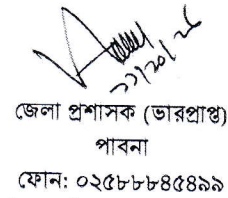 ২২/১০/২৫
জেলা প্রশাসক (ভারপ্রাপ্ত)
পাবনা
ফোন: ০২৫৮৮৮৪৫৪৯৯